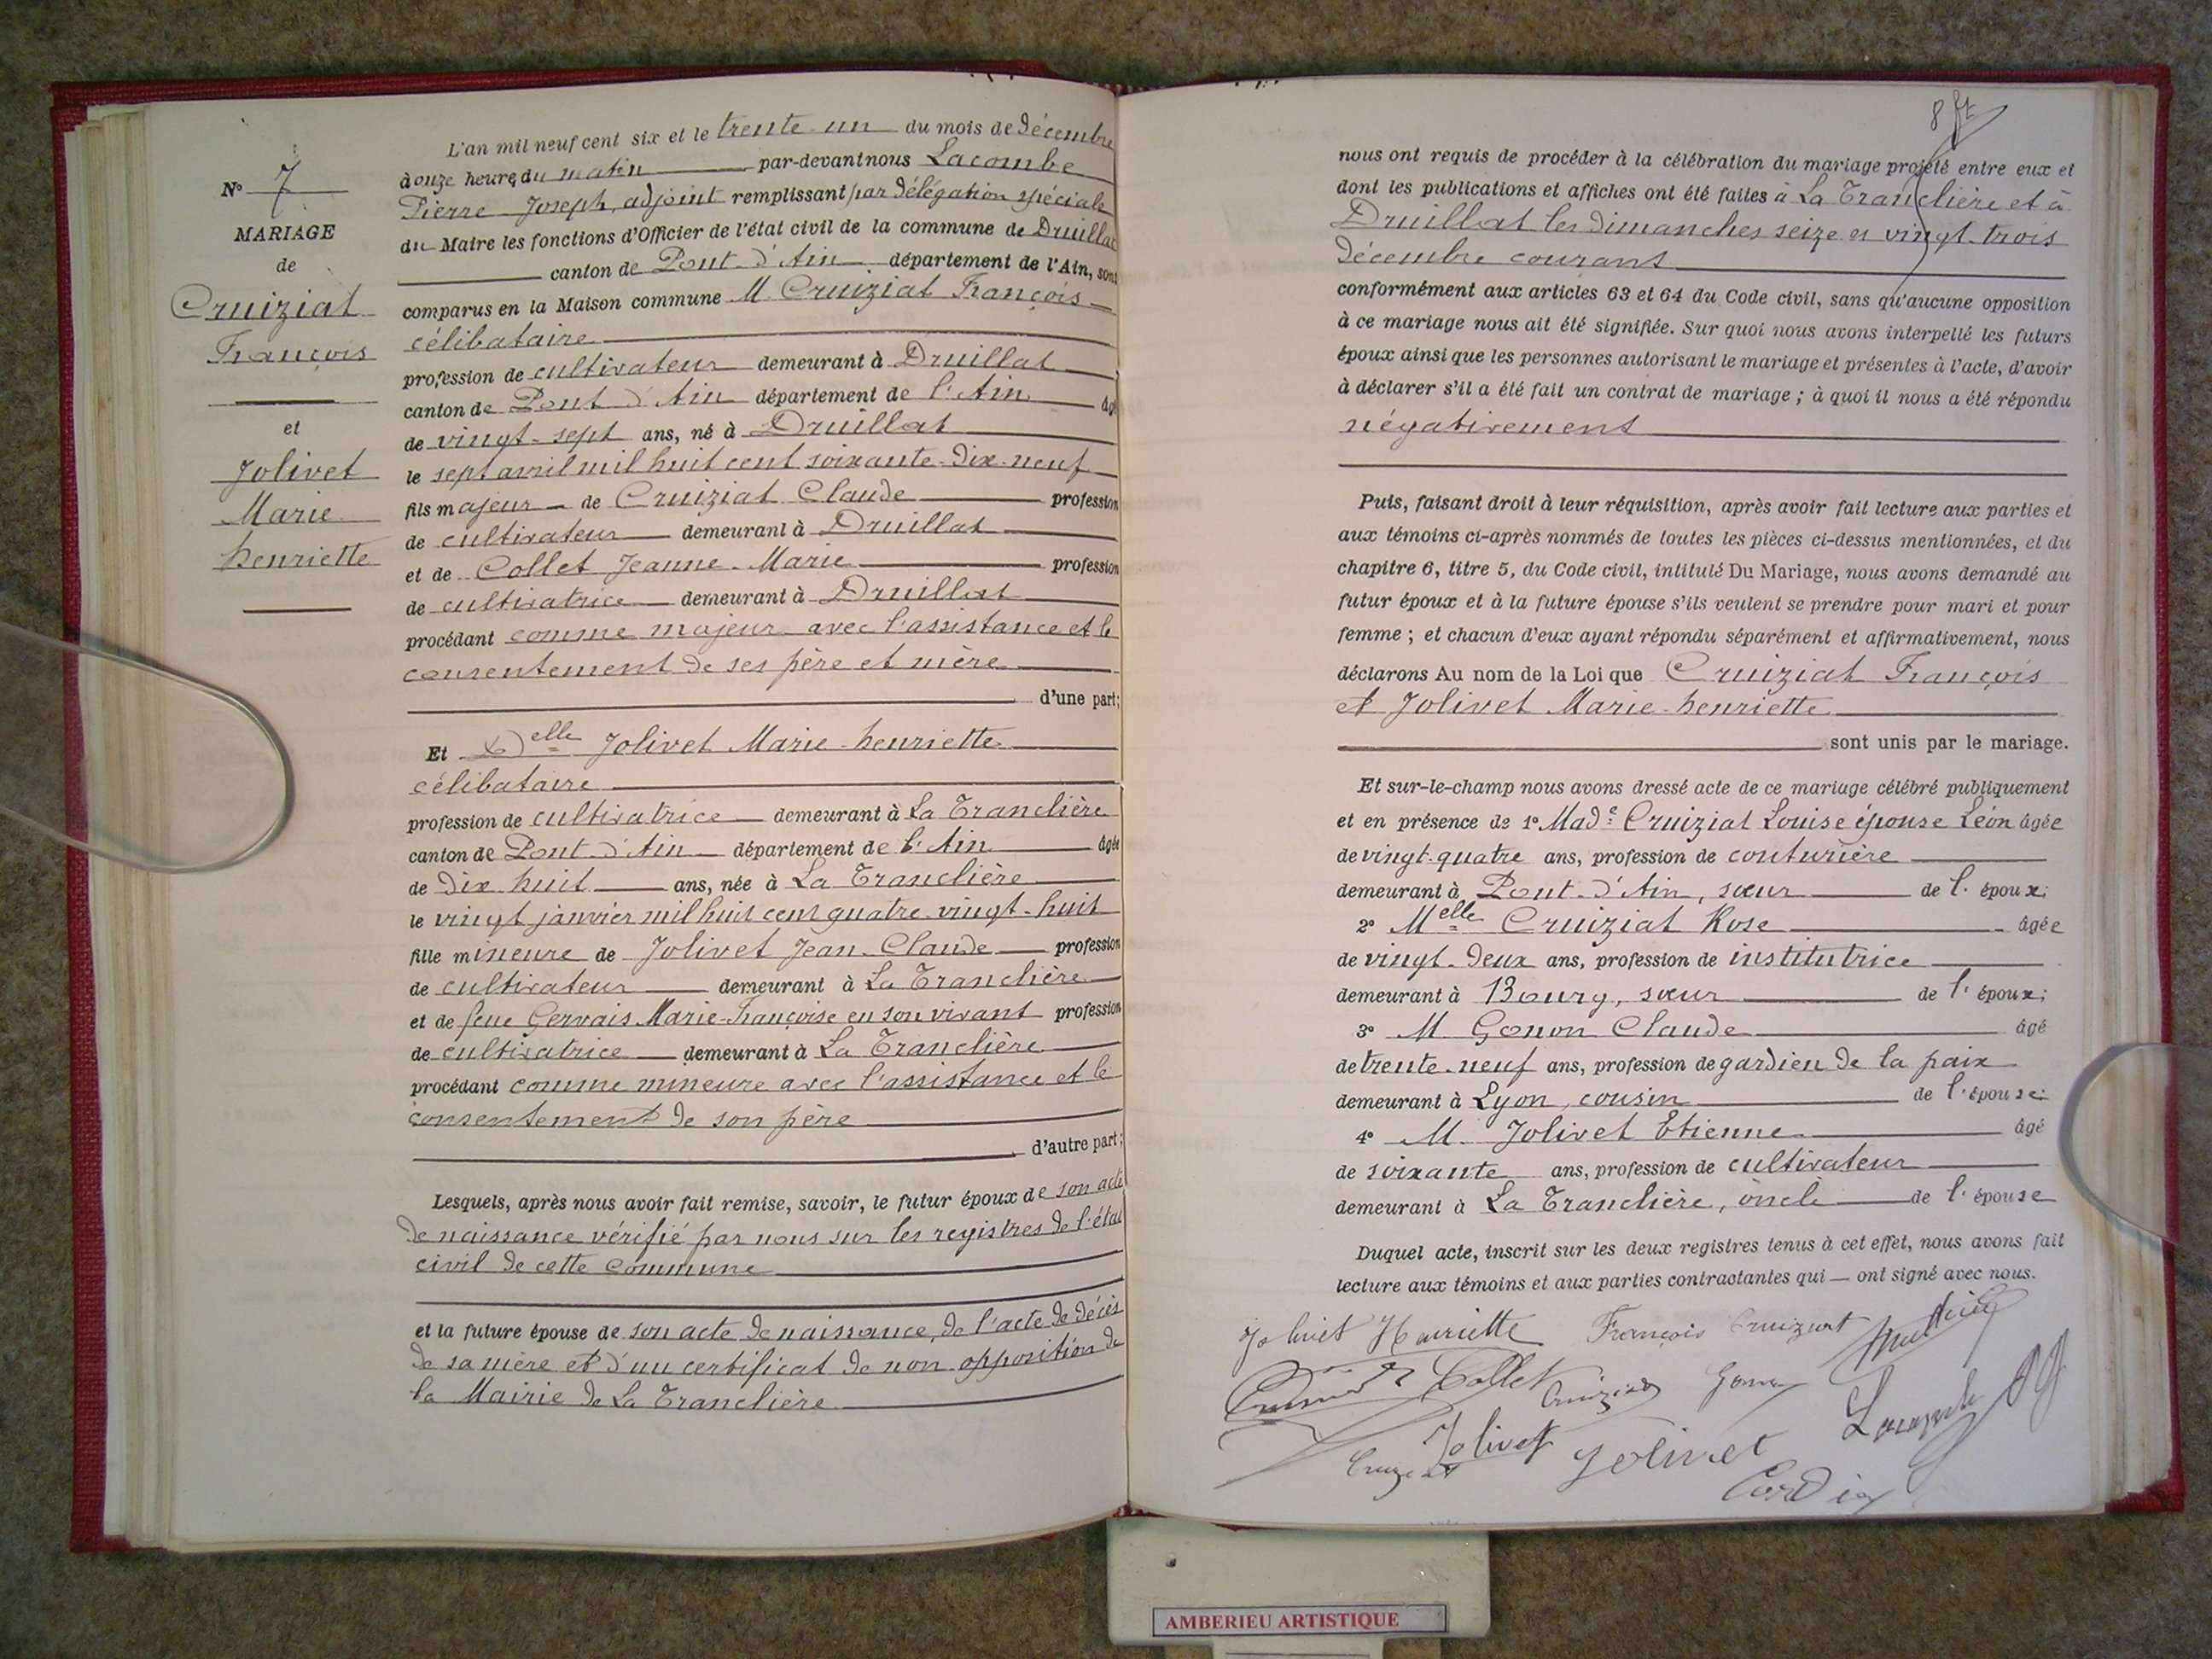 N° 7
MARIAGE
de
Cruiziat
François
et
Jolivet
Marie
henriette
L'an mil neuf cent six et le trente un du mois de Décembre
à onze heures du matin par-devant nous Lacombe
Pierre Joseph, adjoint remplissant par délégation spéciale
du Maire les fonctions d'Officier de l'état civil de la commune de Druillat
canton de Pont-d'Ain département de l'Ain, sont
comparus en la Maison commune M. Cruiziat François
célibataire
profession de cultivateur demeurant à Druillat
canton de Pont d'Ain département de l'Ain âgé
de vingt-sept ans, né à Druillat
le sept avril mil huit cent soixante-dix-neuf
fils majeur de Cruiziat Claude profession
de cultivateur demeurant à Druillat
et de Collet Jeanne-Marie profession
de cultivatrice demeurant à Druillat
procédant comme majeur avec l'assistance et le
consentement de ses père et mère
d'une part;
Et Delle Jolivet Marie-henriette
célibataire
profession de cultivatrice demeurant à La Tranclière
canton de Pont-d'Ain département de l'Ain âgée
de dix huit ans, née à La Tranclière
le vingt janvier mil huit cent quatre-vingt-huit
fille mineure de Jolivet Jean-Claude profession
de cultivateur demeurant à La Tranclière
et de feue Gervais Marie-Françoise en son vivant profession
de cultivatrice demeurant à La Tranclière
procédant comme mineure avec l'assistance et le
consentement de son père
d'autre part;
Lesquels, après nous avoir fait remise, savoir, le futur époux de son acte
de naissance vérifié par nous sur les registres de l'état
civil de cette Commune
et la future épouse de son acte de naissance, de l'acte de décès
de sa mère et d'un certificat de non opposition de
la Mairie de La Tranclière
8 ft
nous ont requis de procéder à la célébration du mariage projeté entre eux et
dont les publications et affiches ont été faites à La Tranclière et à
Druillat les dimanches seize et vingt-trois
décembre courant
conformément aux articles 63 et 64 du Code civil, sans qu'aucune opposition
à ce mariage nous ait été signifiée. Sur quoi nous avons interpellé les futurs
époux ainsi que les personnes autorisant le mariage et présentes à l'acte, d'avoir
à déclarer s'il a été fait un contrat de mariage ; à quoi il nous a été répondu
négativement
Puis, faisant droit à leur réquisition, après avoir fait lecture aux parties et
aux témoins ci-après nommés de toutes les pièces ci-dessus mentionnées, et du
chapitre 6, titre 5, du Code civil, intitulé Du Mariage, nous avons demandé au
futur époux et à la future épouse s'ils veulent se prendre pour mari et pour
femme ; et chacun d'eux ayant répondu séparément et affirmativement, nous
déclarons Au nom de la Loi que Cruiziat François
et Jolivet Marie-henriette
sont unis par le mariage.
Et sur-le-champ nous avons dressé acte de ce mariage célébré publiquement
et en présence de 1° Made Cruiziat Louise épouse Léon âgée
de vingt-quatre ans, profession de couturière
demeurant à Pont-d'Ain, sœur de l'époux;
2° Melle Cruiziat Rose âgée
de vingt-deux ans, profession de institutrice
demeurant à Bourg, sœur de l'époux;
3° M Gonon Claude âgé
de trente-neuf ans, profession de gardien de la paix
demeurant à Lyon, cousin de l'épouse;
4° M. Jolivet Etienne âgé
de soixante ans, profession de cultivateur
demeurant à La Tranclière, oncle de l'épouse
Duquel acte, inscrit sur les deux registres tenus à cet effet, nous avons fait
lecture aux témoins et aux parties contractantes qui — ont signé avec nous.
Jolivet Henriette François Cruiziat
Collet Cruiziat Gonon
Lacombe
Jolivet Jolivet
Cruiziat
AMBERIEU ARTISTIQUE